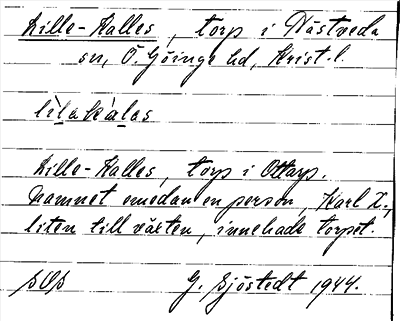 Lille-Kalles, torp i Nästveda
sn, Ö. Göinge hd, Krist. l.
lìlakàlas
Lille-Kalles, torp i Ottarp.
Namnet emedan en person, Karl L.,
liten till växten, innehade torpet.
SOS G. Sjöstedt 1944.